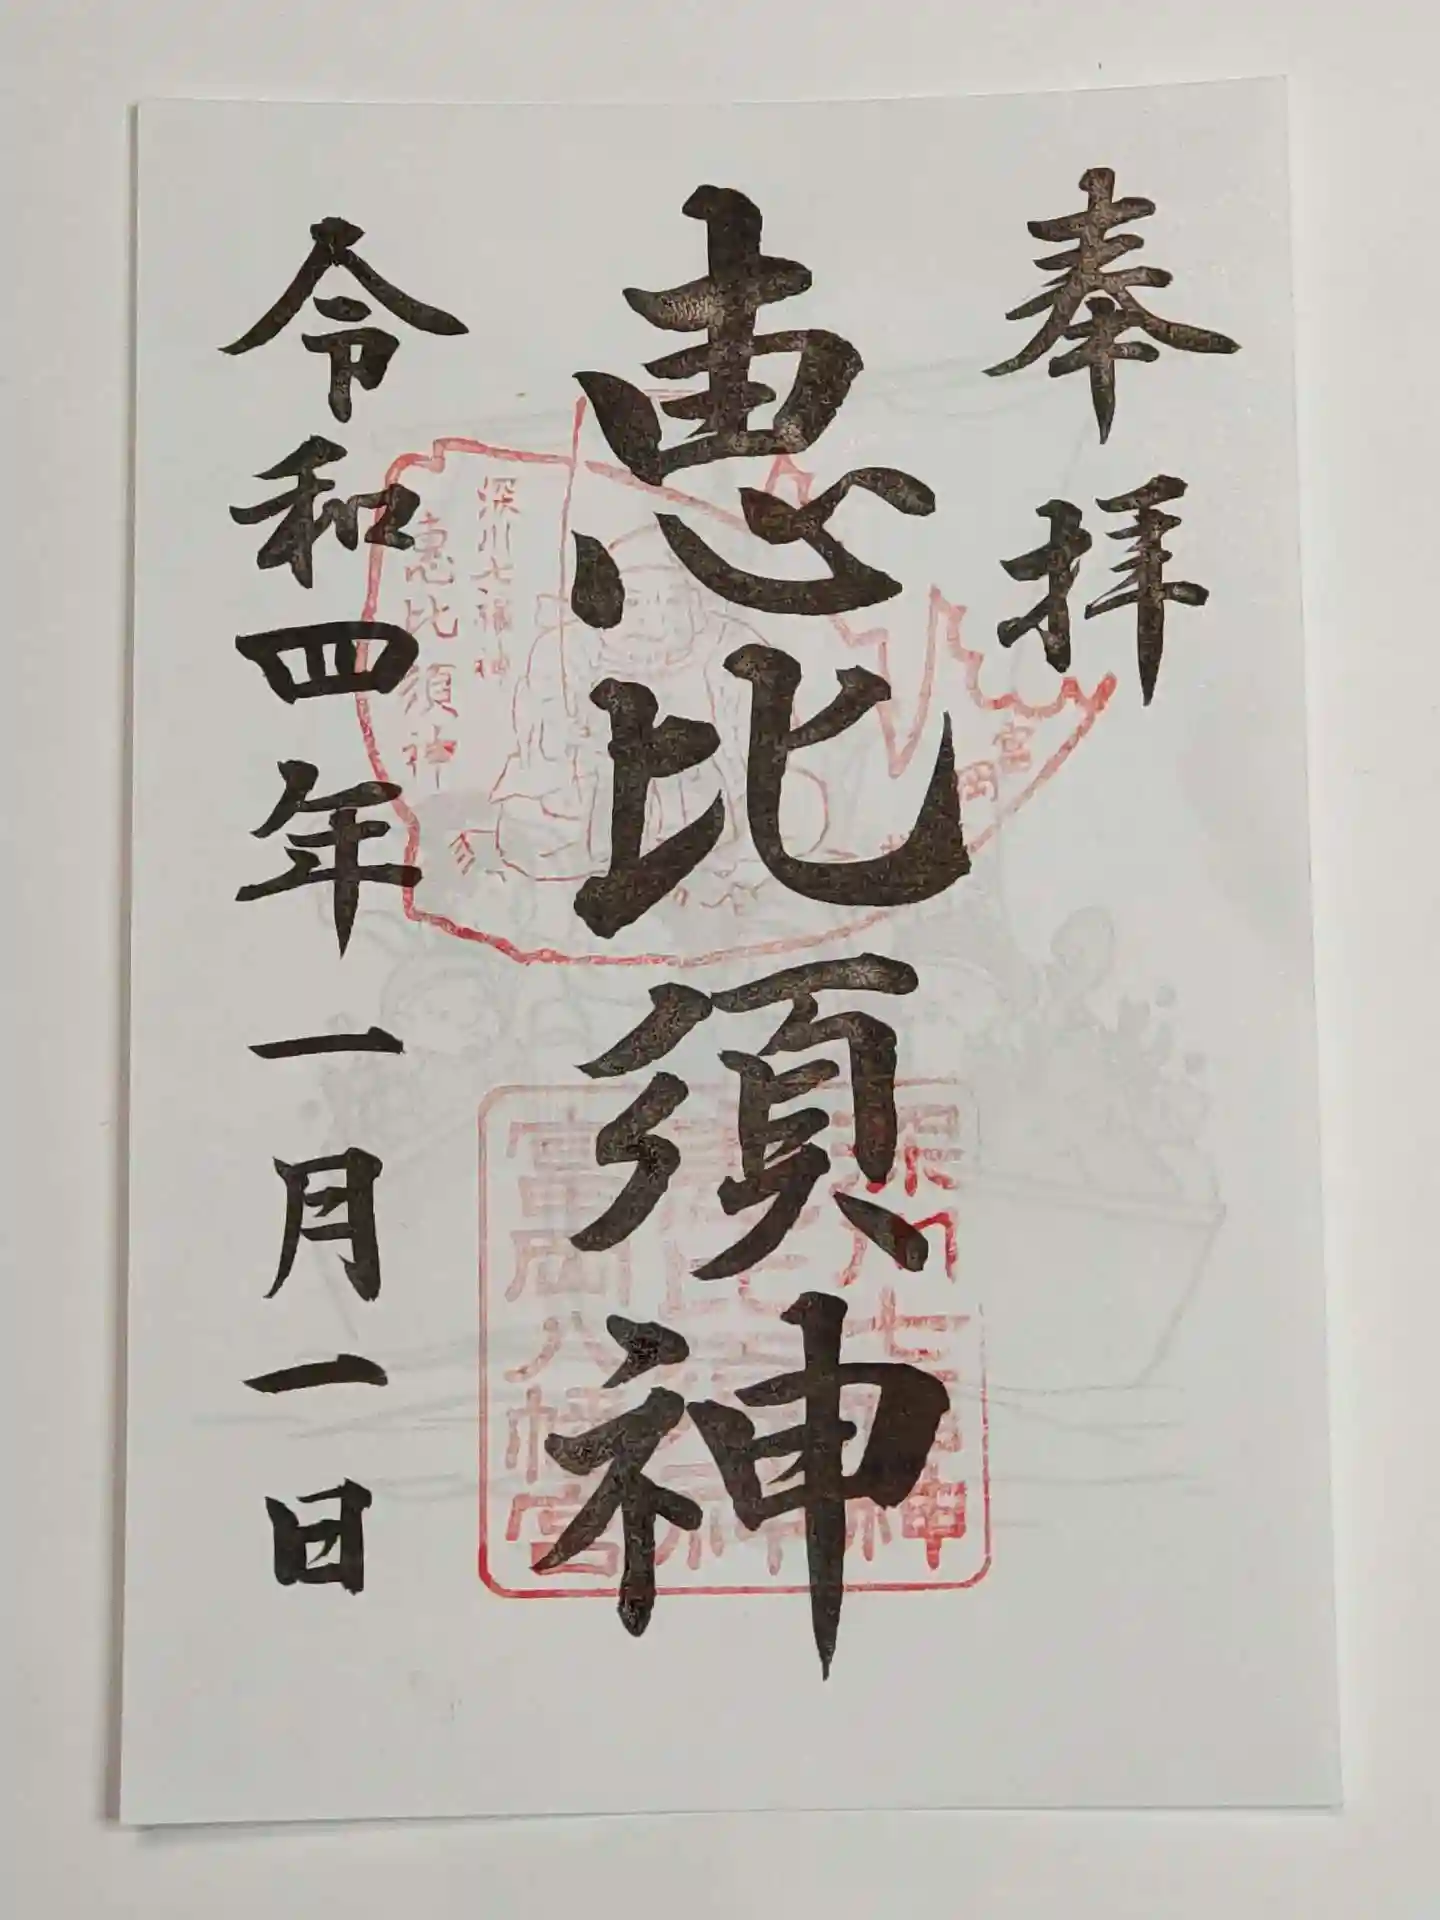 奉拝
恵比須神
令和四年一月一日
深川七福神
恵比須神
富岡
深川七福神
富岡八幡宮